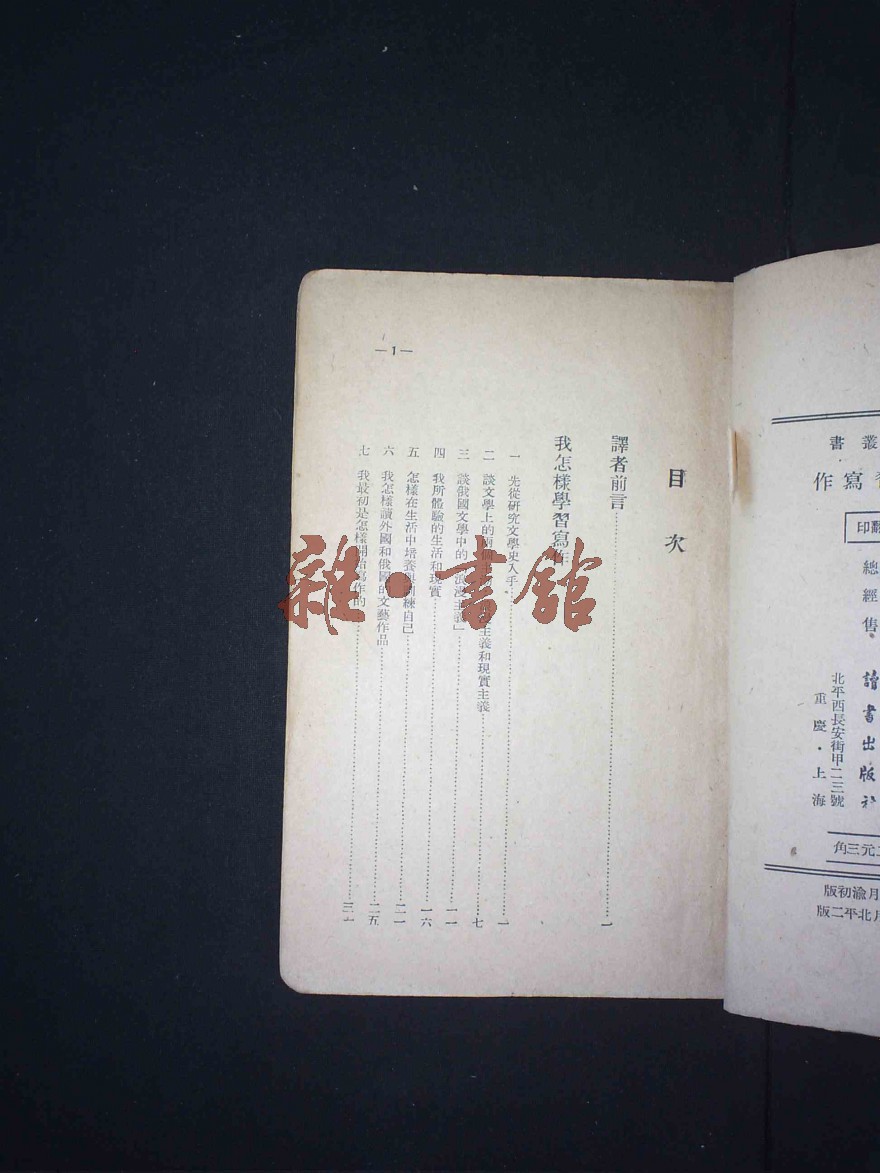 叢書
習寫作
翻印
總經售
讀書出版社
北平西長安街甲二三號
重慶·上海
元三角
月渝初版
月北平二版
目次
譯者前言 一
我怎樣學習寫作
一 先從研究文學史入手 一
二 談文學上的兩個 主義和現實主義 七
三 談俄國文學中的「浪漫主義」 一一
四 我所體驗的生活和現實 一六
五 怎樣在生活中培養 訓練自己 二一
六 我怎樣讀外國和俄國的文藝作品 二五
七 我最初是怎樣開始寫作的
—1—
雜·書館